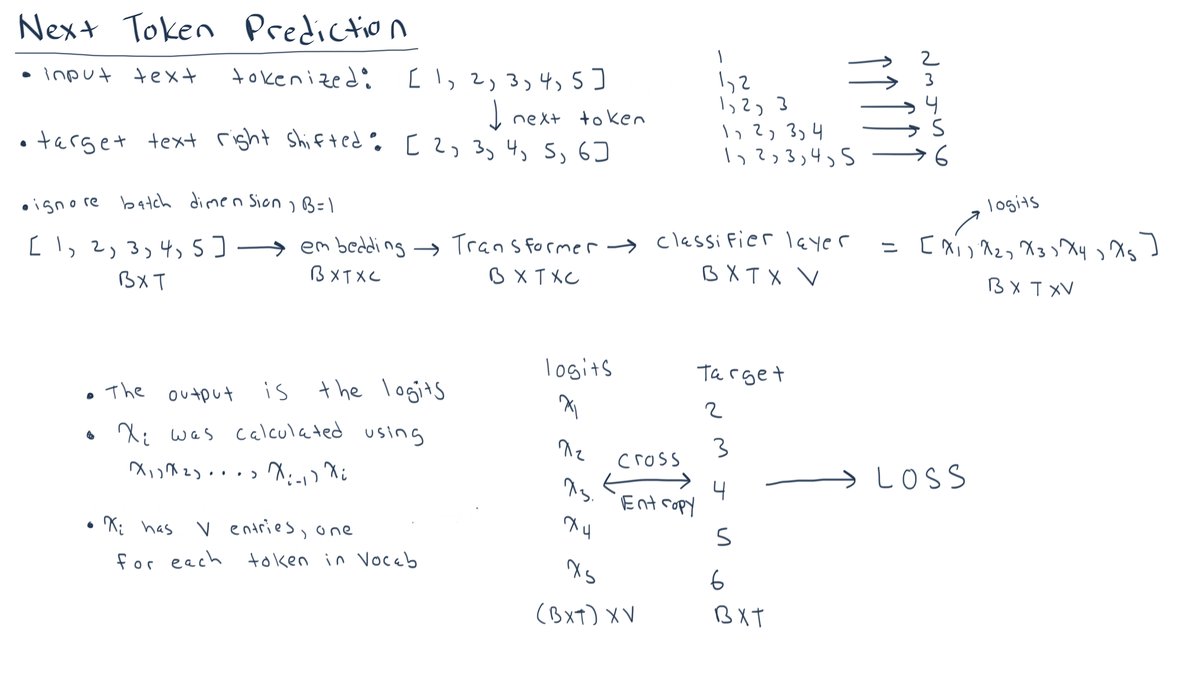 Next Token Prediction
• input text tokenized: [ 1, 2, 3, 4, 5 ]
↓ next token
• target text right shifted: [ 2, 3, 4, 5, 6 ]
1 → 2
1, 2 → 3
1, 2, 3 → 4
1, 2, 3, 4 → 5
1, 2, 3, 4, 5 → 6
• ignore batch dimension, B=1
logits
[ 1, 2, 3, 4, 5 ] → embedding → Transformer → classifier layer = [ x₁, x₂, x₃, x₄, x₅ ]
BXT BXTXC BXTXC BXTXV BXTXV
• The output is the logits
• xᵢ was calculated using
x₁, x₂, ..., xᵢ₋₁, xᵢ
• xᵢ has V entries, one
for each token in Vocab
logits Target
x₁ 2
x₂ 3
x₃ 4
x₄ 5
x₅ 6
(BXT) XV BXT
Cross
Entropy
→ LOSS